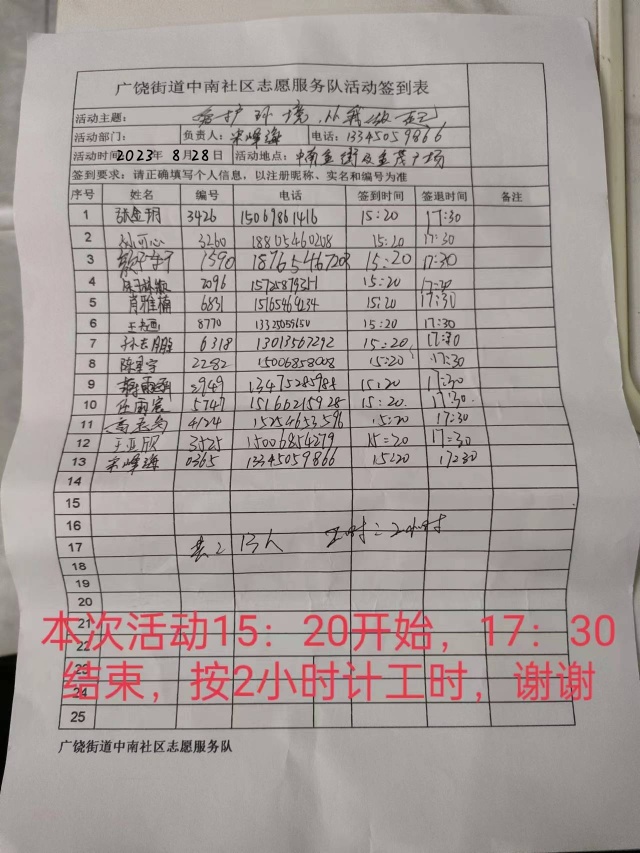 广饶街道中南社区志愿服务队活动签到表
活动主题： 爱护环境，从我做起
活动部门： 负责人：宋峰海 电话：13345059866
活动时间 2023年 8月28日 活动地点：中南金街及金茂广场
签到要求：请正确填写个人信息，以注册昵称、实名和编号为准
序号 姓名 编号 电话 签到时间 签退时间 备注
1 张金玥 3426 15069861416 15:20 17:30
2 可心 3260 18805460208 15:20 17:30
3 1590 18765467208 15:20 17:30
4 7096 15:20 17:30
5 肖雅楠 6831 15165469234 15:20 17:30
6 8770 13325059650 15:20 17:30
7 6318 13013567292 15:20 17:30
8 陈星宇 2282 15006858008 15:20 17:30
9 2949 13475285988 15:20 17:30
10 5747 15166215928 15:20 17:30
11 4124 15254653596 15:20 17:30
12 3525 15006854279 15:20 17:30
13 宋峰海 0365 13345059866 15:20 17:30
14
15
16
17 共：13人 工时：2小时
18
19
20
21
22
23
24
25
本次活动15：20开始，17：30
结束，按2小时计工时，谢谢
广饶街道中南社区志愿服务队